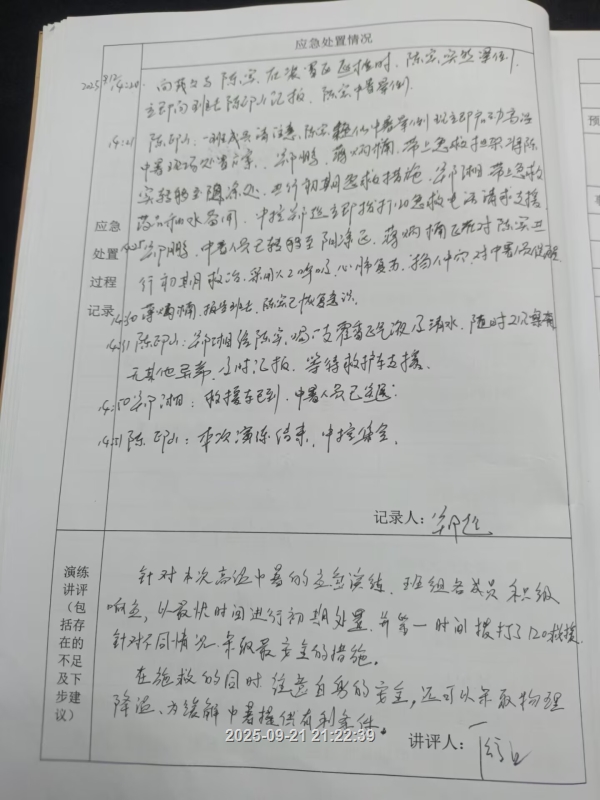 应急处置情况
2025 14:20 向 陈宏 在装置区巡检时，陈宏突然晕倒，
立即向班长陈邱山汇报，陈宏中暑晕倒。
14:21 陈邱山：一班成员请注意，陈宏 中暑晕倒 现立即启动高温
中暑现场处置方案，郑鹏、蒋炳楠，带上急救 将陈
宏转移至阴凉处，进行初期急救措施，郑湘带上急救
药品和水备用，中控郑延立即拨打120急救电话请求支援
应急
处置
过程
记录
14:25 郑鹏：中暑人员已转移至阴凉区，蒋炳楠正在对陈宏进
行初期救治，采用人工呼吸，心肺复苏，掐人中穴，对中暑人员
14:30 蒋炳楠：报告班长，陈宏已恢复意识。
14:31 陈邱山：郑湘给陈宏喝一支藿香正气液及清水，随时观察有
无其他异常，及时汇报，等待救护车支援。
14:50 郑湘：救援车已到，中暑人员已送医。
14:51 陈邱山：本次演练结束，中控集合。
记录人：郑延
演练
讲评
（包
括存
在的
不足
及下
步建
议）
针对本次高温中暑的应急演练，班组各成员积极
响应，以最快时间进行初期处置，并第一时间拨打了120救援，
针对不同情况采取最安全的措施。
在施救的同时注意自身的安全，还可以采取物理
降温，为缓解中暑提供有利条件。
2025-09-21 21:22:39
讲评人：
预